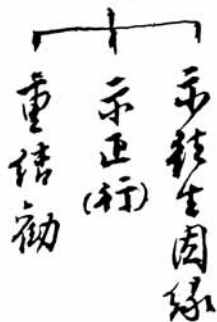 示往生因緣
示正(行)
重結勸